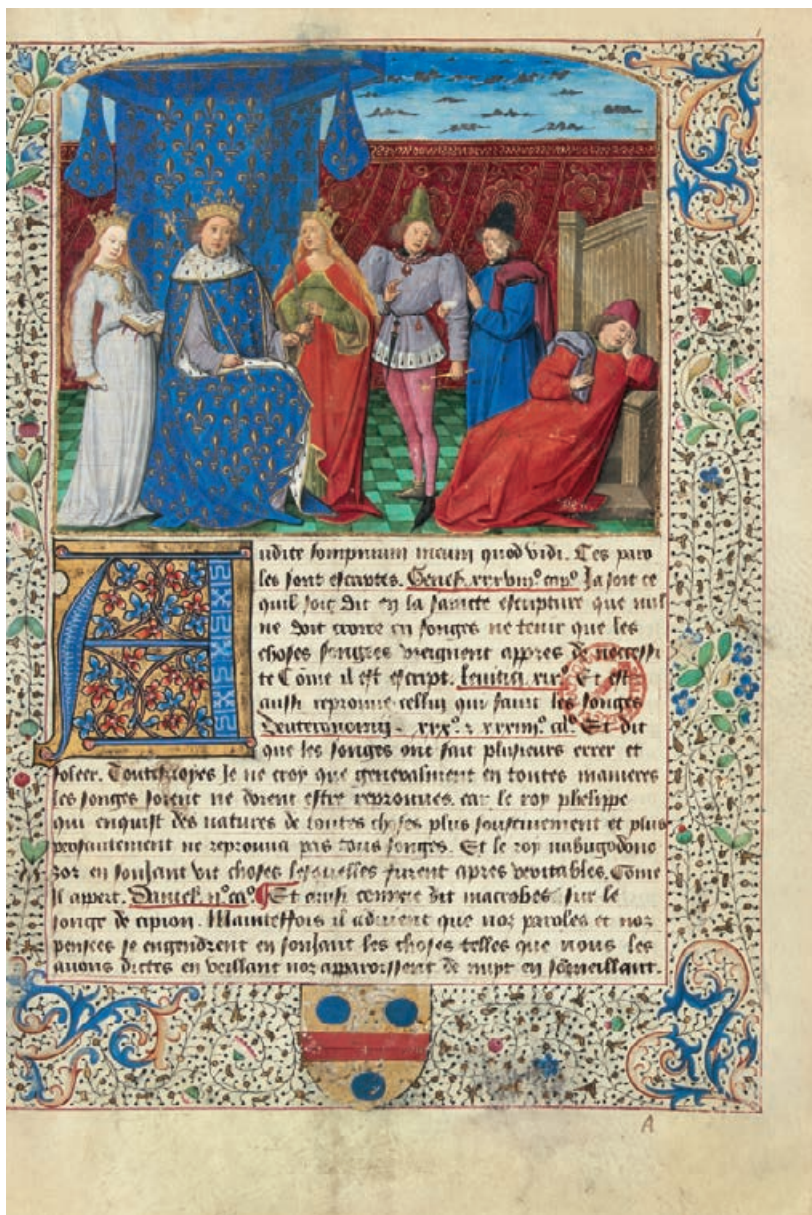 Audite sompnium meum quod vidi. Ces paro
les sont escriptes. Genes. xxxvii.º cap.º Ja soit ce
quil soit dit en la saincte escripture que nul
ne doit croire en songes ne tenir que les
choses songees vieignent apres de necessi
te Come il est escript. Levitici. xix.º Et est
aussi reprouve cellui qui faint les songes
Deuteronomii. Et dit
que les songes ont fait plusieurs errer et
foleer. Toutesvoyes Je ne croy que generalment en toutes manieres
les songes soient ne doient estre reprouves. car le roy phelippe
qui enquist des natures de toutes choses plus soustivement et plus
parfaitement ne reprouva pas tous songes. Et le roy nabugodono
zor en sonjant vit choses lesquelles furent apres veritables. Come
il appert. Daniel. ii.º ca.º Et aussi come dit macrobes sur le
songe de cipion. Mainteffois il advient que noz paroles et noz
pensees se engendrent en sonjant les choses telles que nous les
avons dictes en veillant noz apparoissent de nuyt en someillant.
A